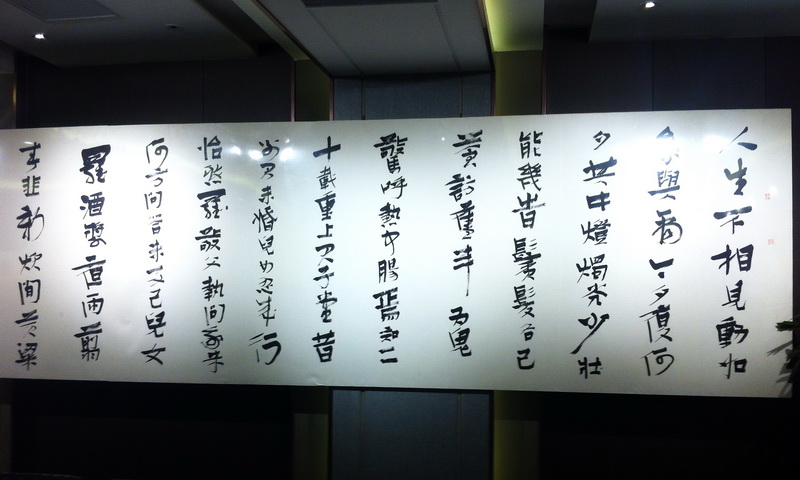 人生不相見動如
參與商今夕復何
夕共此燈燭光少壯
能幾時鬢髮各已
蒼訪舊半為鬼
驚呼熱中腸焉知二
十載重上君子堂昔
別君未婚兒女忽成行
怡然敬父執問我來
何方問答未及已兒女
羅酒漿夜雨翦
春韭新炊間黃粱